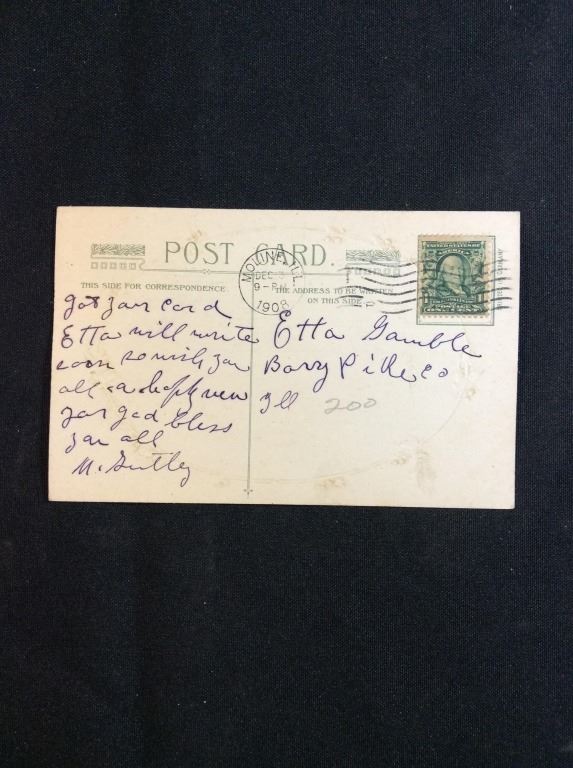 POST CARD.
THIS SIDE FOR CORRESPONDENCE
THE ADDRESS TO BE WRITTEN
ON THIS SIDE
MOLINE ILL
DEC
9-PM
1908
UNITED STATES OF
got your card
Etta will write
soon
all a happy new
year god bless
you all
M.
Etta Gamble
Barry Pike co
Ill
200